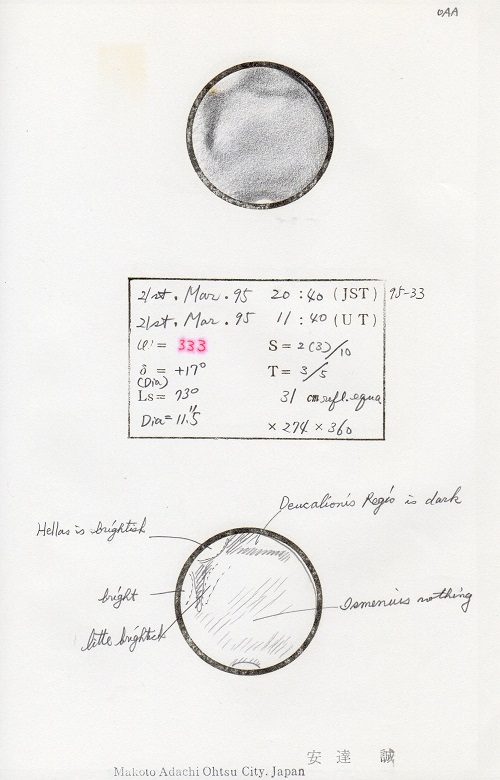 OAA
21st. Mar. 95 20:40 (JST) 95-33
21st. Mar. 95 11:40 (UT)
ω = 333 S = 2(3)/10
δ = +17° T = 3/5
(Dia)
Ls = 73° 31 cm refl. equa
Dia = 11".5 × 274 × 360
Deucalionis Regio is dark
Hellas is brightish
bright
Ismenius nothing
little brightish
安達 誠
Makoto Adachi Ohtsu City, Japan